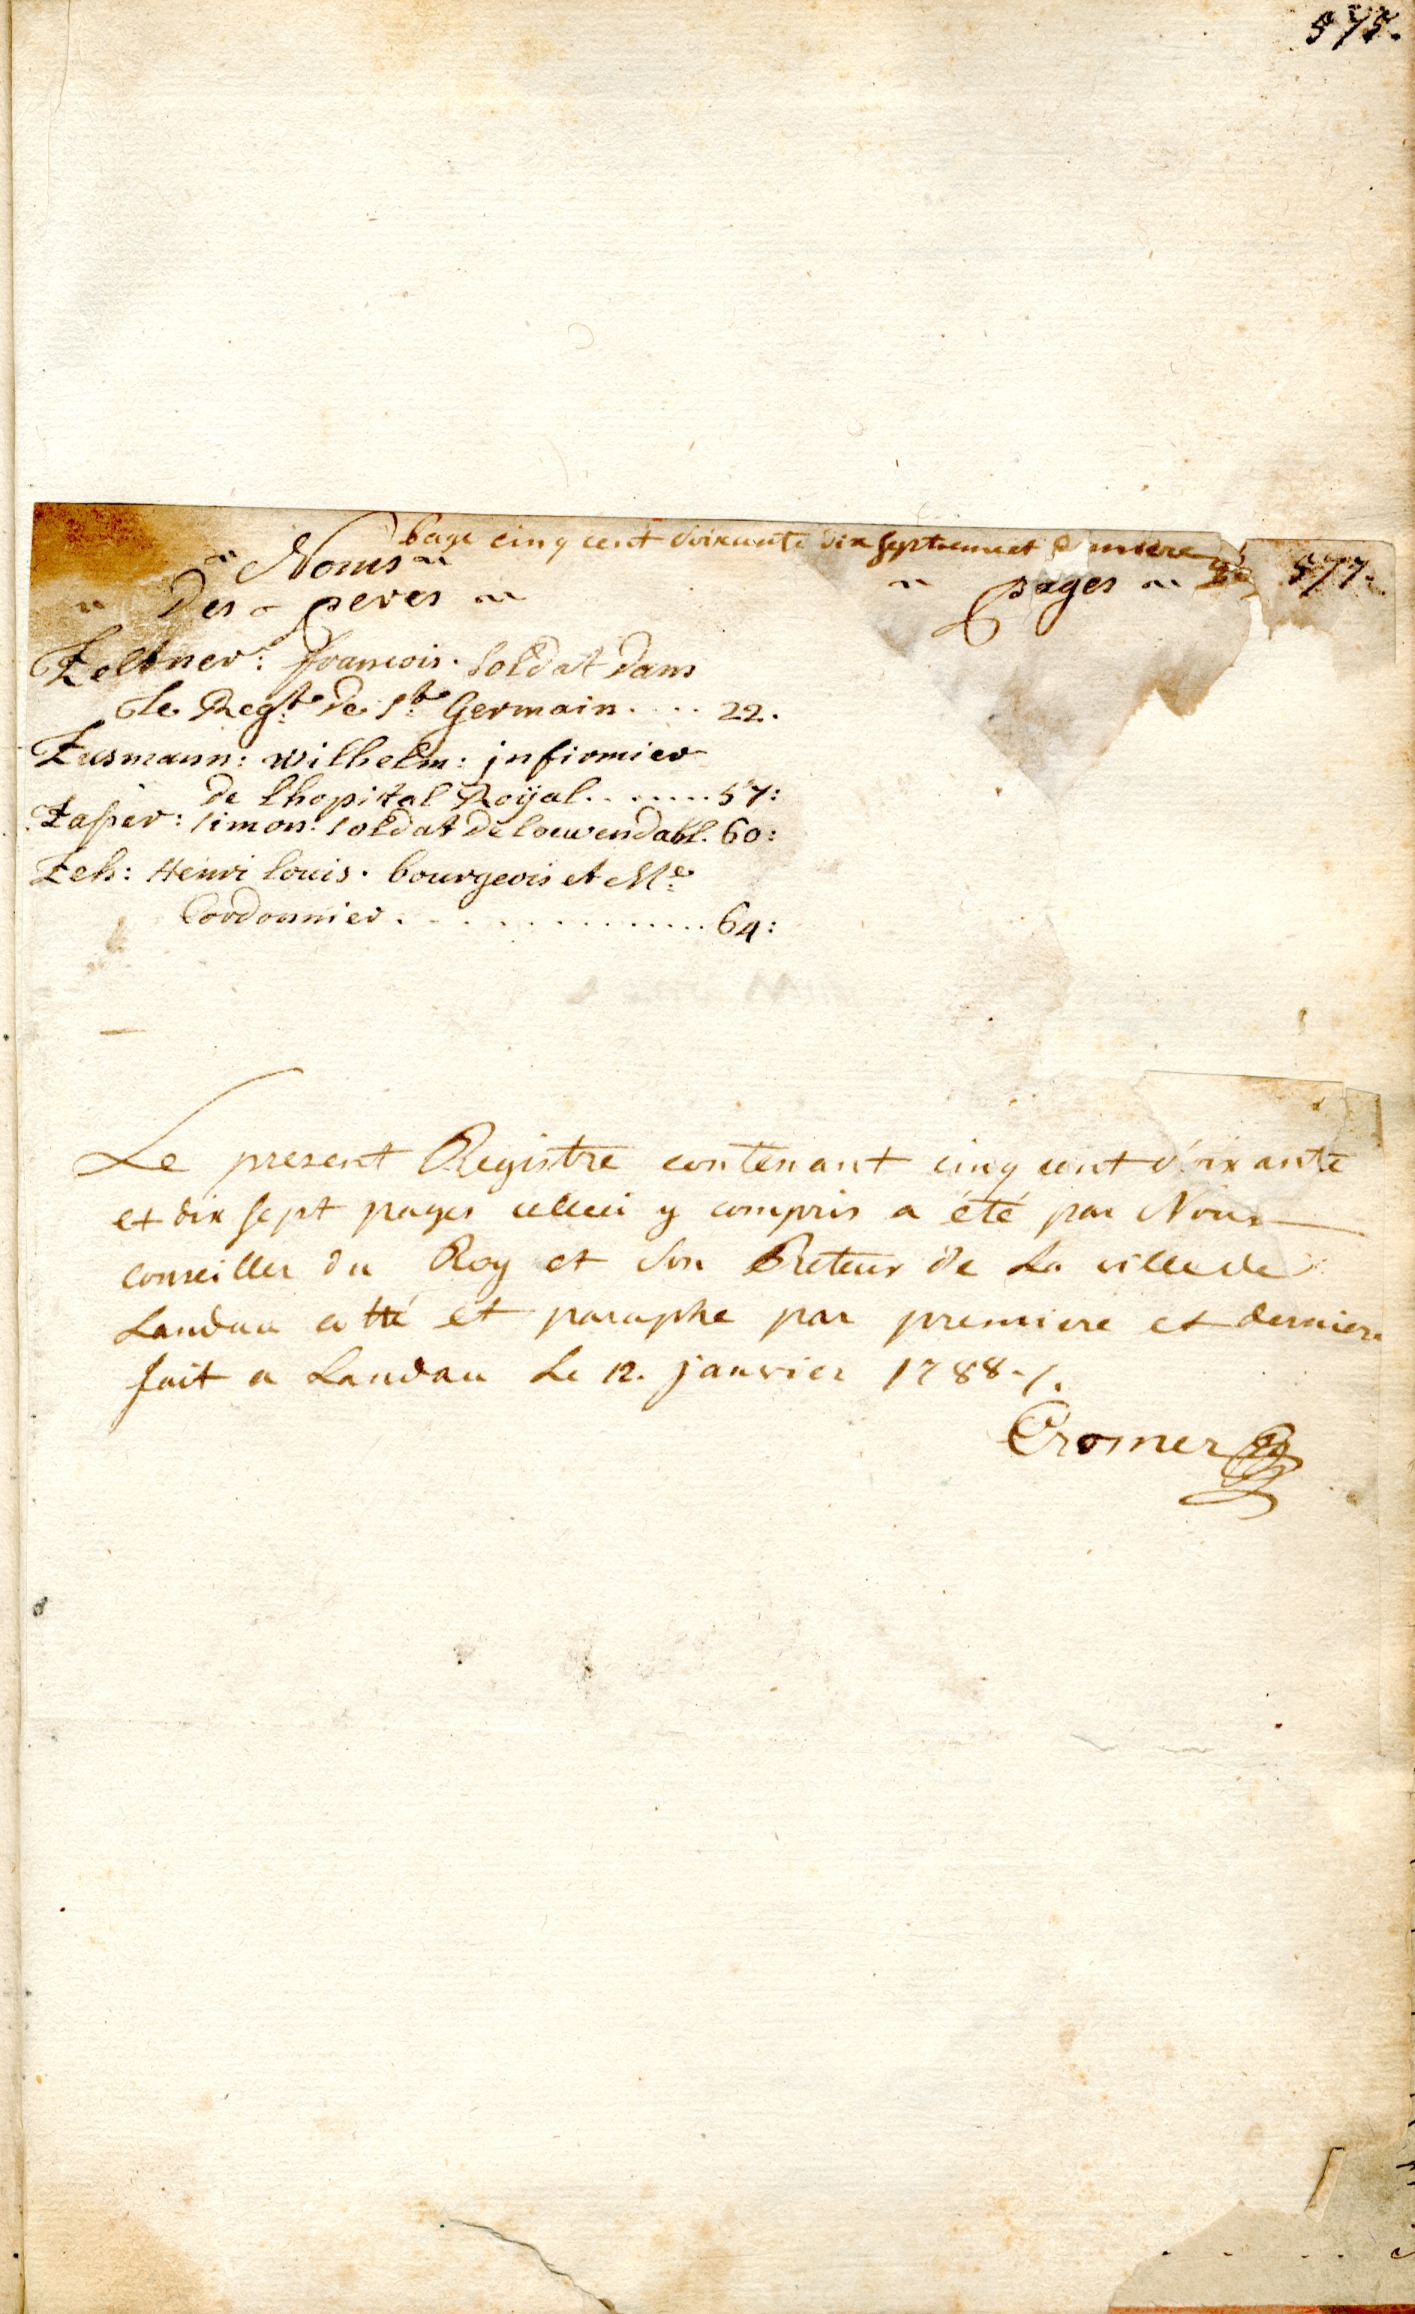 575.
page cinq cent soixante dix septieme et derniere
577.
Noms
Des peres
pages
Zeltner: francois. soldat dans
Le Regt. de St. Germain.... 22.
Zusmann: wilhelm: jnfirmier
de lhopital Royal....... 57:
Zasser: simon: soldat de loewendahl. 60:
Zeh: Henri louis. bourgeois et Me.
Cordonnier................ 64:
Le present Registre contenant cinq cent soixante
et dix sept pages celleci y compris a été par Nous
Conseiller du Roy et son Preteur de La ville de
Landau cotté et paraphe par premiere et derniere
fait a Landau Le 12. janvier 1788./.
Cromer